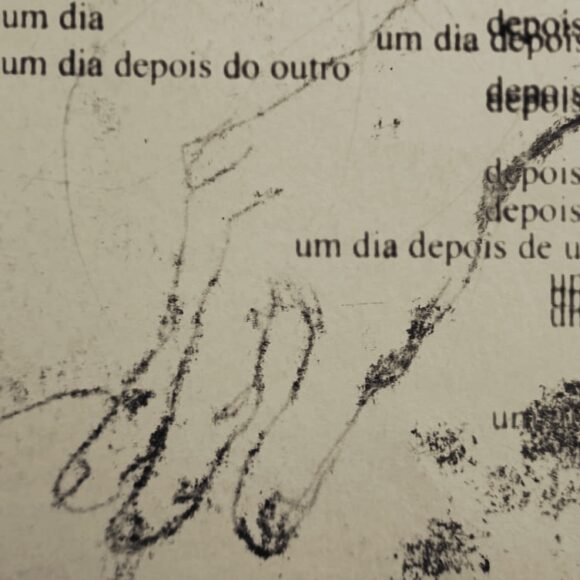 um dia
depois
um dia depois
um dia depois do outro
depois
depois
depois
depois
um dia depois de u
um